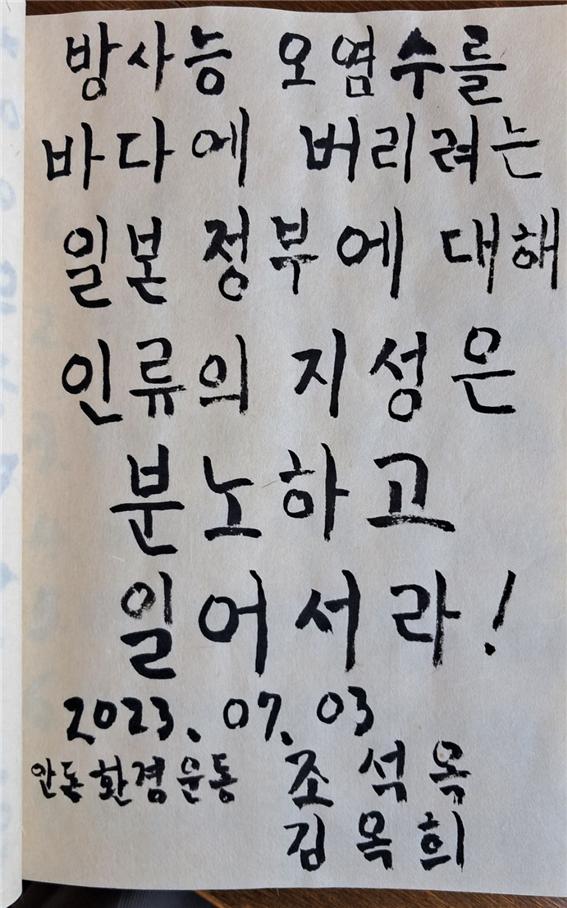 방사능 오염수를
바다에 버리려는
일본 정부에 대해
인류의 지성은
분노하고
일어서라!
2023. 07. 03
안동환경운동 조석옥
김옥희